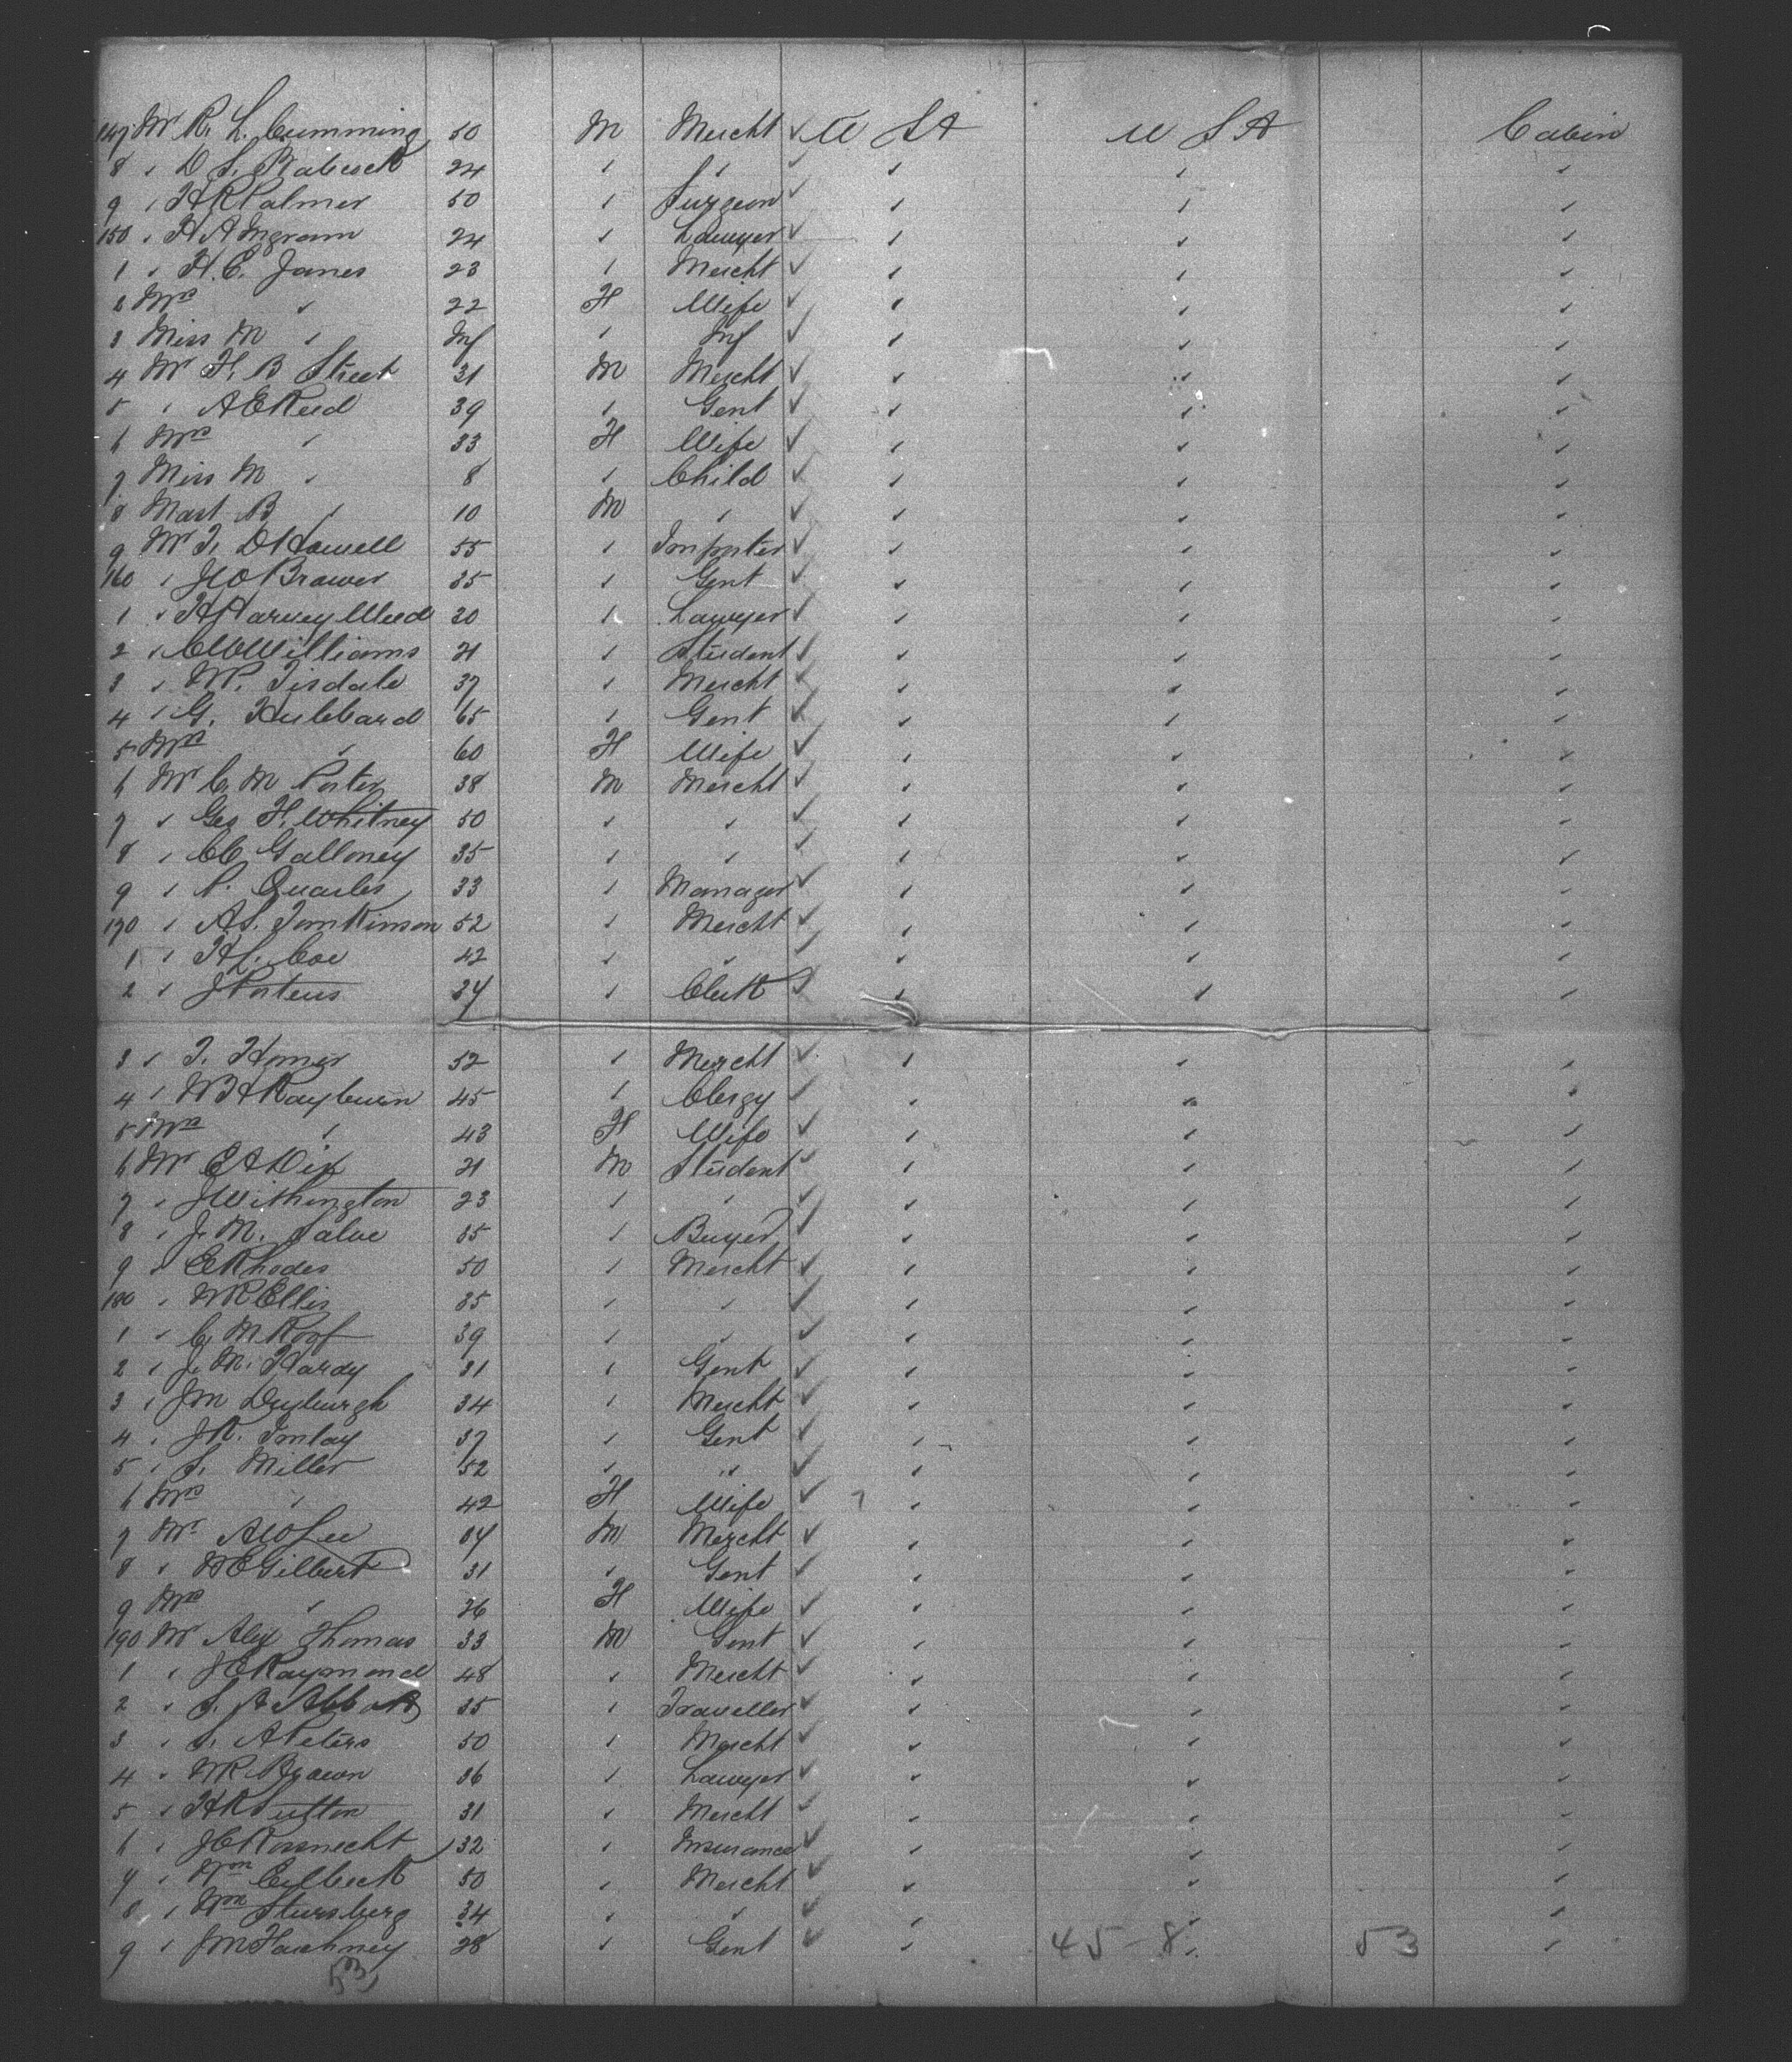 147 Mr R. L. Cumming 50 M Mercht ✓ U S A U S A Cabin
8 " D S. Babcock 24 " " ✓ " " "
9 " H R Palmer 50 " Surgeon ✓ " " "
150 " H A Ingram 24 " Lawyer ✓ " " "
1 " H. E. Janes 23 " Mercht ✓ " " "
2 Mrs " 22 F Wife ✓ " " "
3 Miss M " Inf " Inf ✓ " " "
4 Mr F. B Street 31 M Mercht ✓ " " "
5 " A E Reed 39 " Gent ✓ " " "
6 Mrs " 33 F Wife ✓ " " "
7 Miss M " 8 " Child ✓ " " "
8 Mast B " 10 M " ✓ " " "
9 Mr T. D Howell 55 " Importer ✓ " " "
160 " J O Brawer 35 " Gent ✓ " " "
1 " H Harvey Weed 30 " Lawyer ✓ " " "
2 " C W Williams 21 " Student ✓ " " "
3 " W. Tisdale 37 " Mercht ✓ " " "
4 " G. Hubbard 65 " Gent ✓ " " "
5 Mrs " 60 F Wife ✓ " " "
6 Mr C. M Porter 38 M Mercht ✓ " " "
7 " Geo H. Whitney 50 " " ✓ " " "
8 " C C Galloney 35 " " ✓ " " "
9 " P. Quarles 33 " Manager ✓ " " "
170 " A S. Tomkinson 52 " Mercht ✓ " " "
1 " H L. Coe 42 " " ✓ " " "
2 " J Porteus 34 " Clerk ✓ " " "
3 " T. Homer 52 " Mercht ✓ " " "
4 " W B A Rayburn 45 " Clergy ✓ " " "
5 Mrs " 43 F Wife ✓ " " "
6 Mr E A Dix 21 M Student ✓ " " "
7 " J Withington 23 " " ✓ " " "
8 " J. M. Salve 35 " Buyer ✓ " " "
9 " E Rhodes 50 " Mercht ✓ " " "
180 " W R Ellis 35 " " ✓ " " "
1 " C. M Roof 39 " " ✓ " " "
2 " J. M. Hardy 31 " Gent ✓ " " "
3 " J M Dryburgh 34 " Mercht ✓ " " "
4 " J R. Imlay 37 " Gent ✓ " " "
5 " S. Miller 52 " " ✓ " " "
6 Mrs " 42 F Wife ✓ " " "
7 Mr A W Lee 34 M Mercht ✓ " " "
8 " W E Gilbert 31 " Gent ✓ " " "
9 Mrs " 26 F Wife ✓ " " "
190 Mr Alex Thomas 33 M Gent ✓ " " "
1 " J E Raymond 48 " Mercht ✓ " " "
2 " S. A Abbott 35 " Traveller ✓ " " "
3 " S. A Peters 50 " Mercht ✓ " " "
4 " W R Brown 36 " Lawyer ✓ " " "
5 " H R Sutton 31 " Mercht ✓ " " "
6 " J C Rosnecht 32 " Insurance ✓ " " "
7 " Wm Culbeck 50 " Mercht ✓ " " "
8 " Wm Stursberg 34 " " ✓ " " "
9 " J M Hackney 28 " Gent ✓ " 45 - 8 " 53 "
53